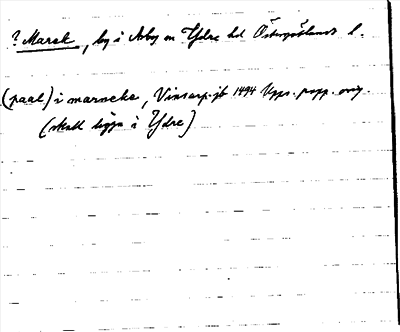 ? Marsk, by i Asby sn Ydre hd Östergötlands l.
(paal) i marneke, Vinsarp. jb 1494 Upps. papp. orig.
(skall ligga i Ydre)